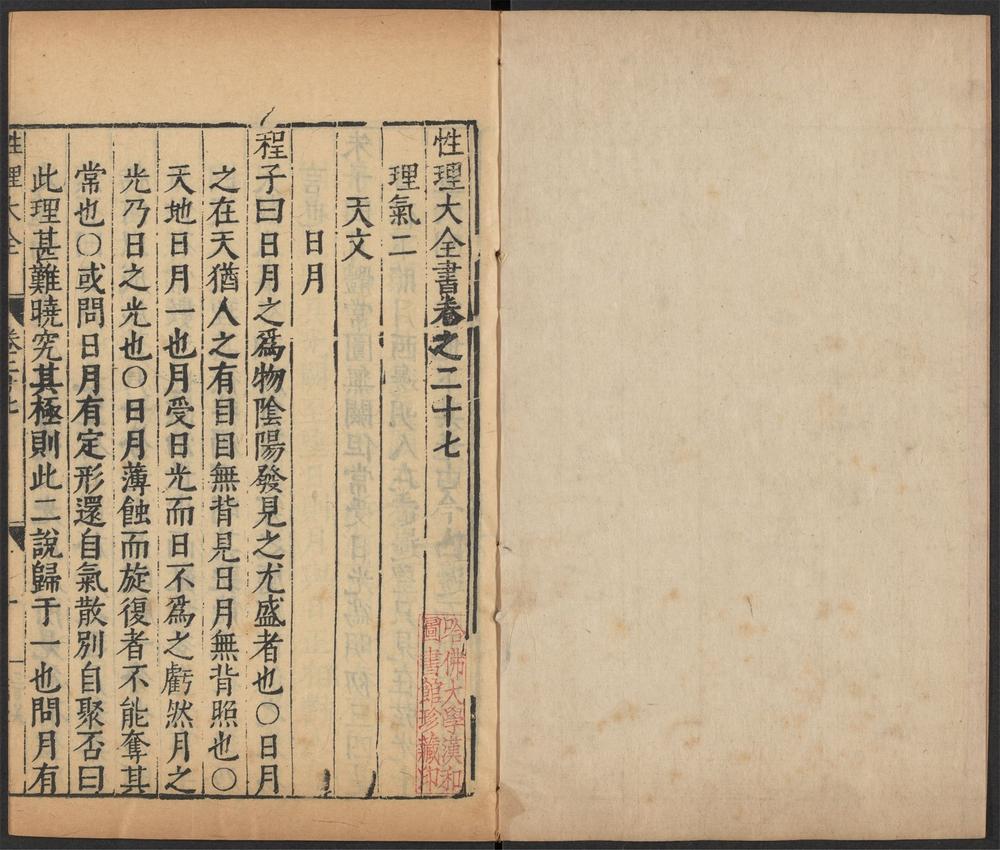 性理大全書卷之二十七
理氣二
天文
日月
程子曰日月之爲物陰陽發見之尤盛者也○日月
之在天猶人之有目目無背見日月無背照也○
天地日月一也月受日光而日不爲之虧然月之
光乃日之光也○日月薄蝕而旋復者不能奪其
常也○或問日月有定形還自氣散別自聚否曰
此理甚難曉究其極則此二說歸于一也問月有
性理大全
哈佛大學漢和
圖書館珍藏印